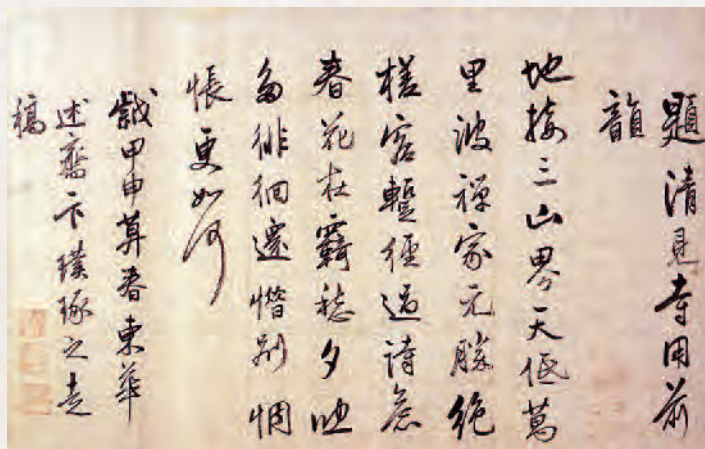 題清見寺用前
韻
地接三山界天低萬
里波禪家元勝絶
槎客蹔經過詩意
春花在羇愁夕
多徘徊還惜別惆
悵更如何
歲甲申暮春東華
述齋卞璞琢之走
稿